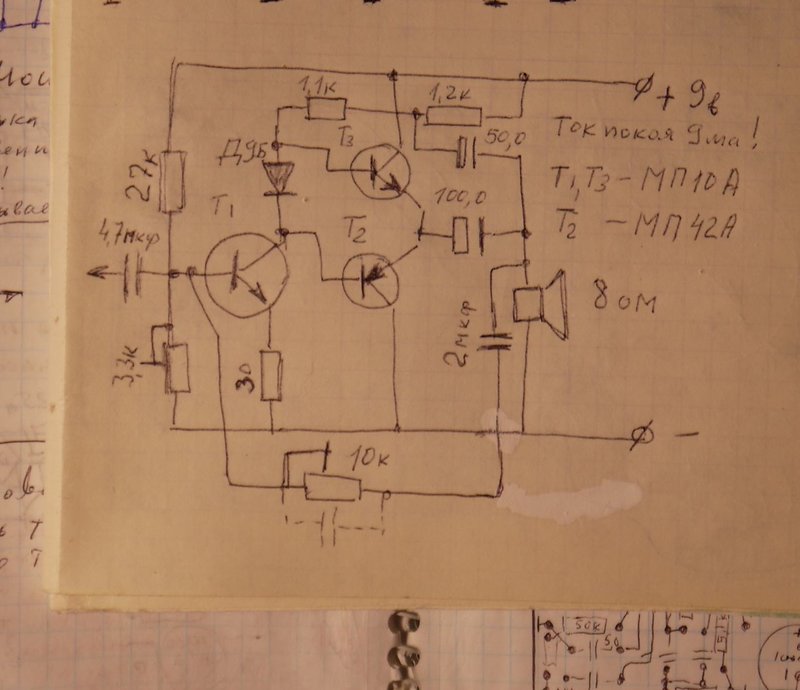 1,1к
1,2к
+ 9в
Ток покоя 9ма!
Д9Б
Т3
50,0
Т1,Т3 - МП10А
27к
Т1
Т2
100,0
Т2 - МП42А
4,7мкф
8 ом
2мкф
3,3к
30
-
10к
50к
5,0
5,1к